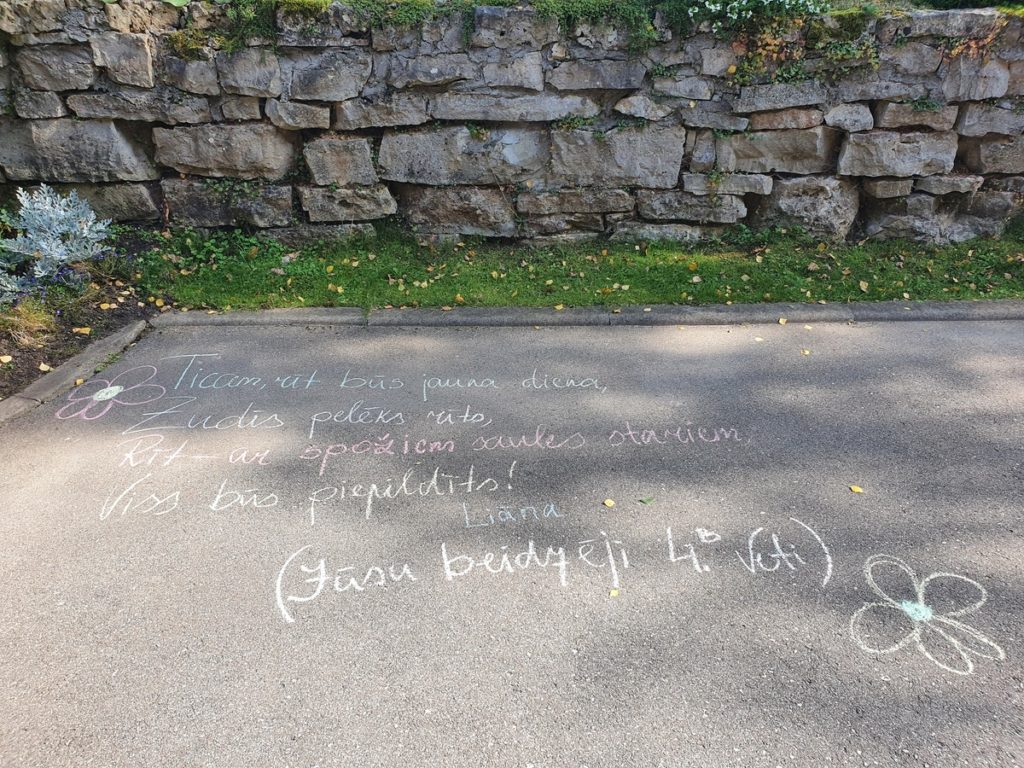 Ticam, rīt būs jauna diena,
Zudīs pelēks rīts,
Rīt - ar spožiem saules stariem,
Viss būs piepildīts!
Liāna
(Jūsu beidzēji 4.B Vēji)